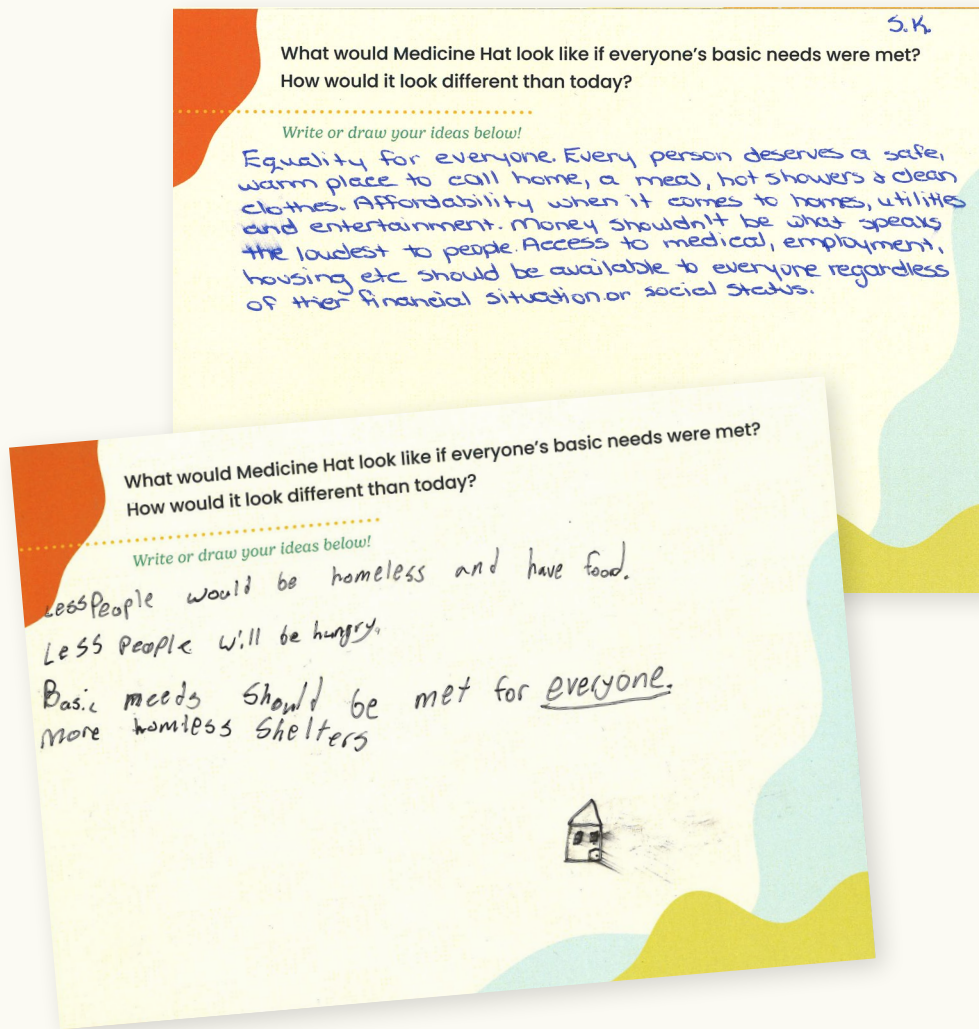 S.K.
What would Medicine Hat look like if everyone's basic needs were met?
How would it look different than today?
Write or draw your ideas below!
Equality for everyone. Every person deserves a safe,
warm place to call home, a meal, hot showers & clean
clothes. Affordability when it comes to homes, utilities
and entertainment. Money shouldn't be what speaks
the loudest to people. Access to medical, employment,
housing etc should be available to everyone regardless
of thier financial situation or social status.
What would Medicine Hat look like if everyone's basic needs were met?
How would it look different than today?
Write or draw your ideas below!
Less People would be homeless and have food.
Less People will be hungry.
Basic meeds Should be met for everyone.
More homless Shelters